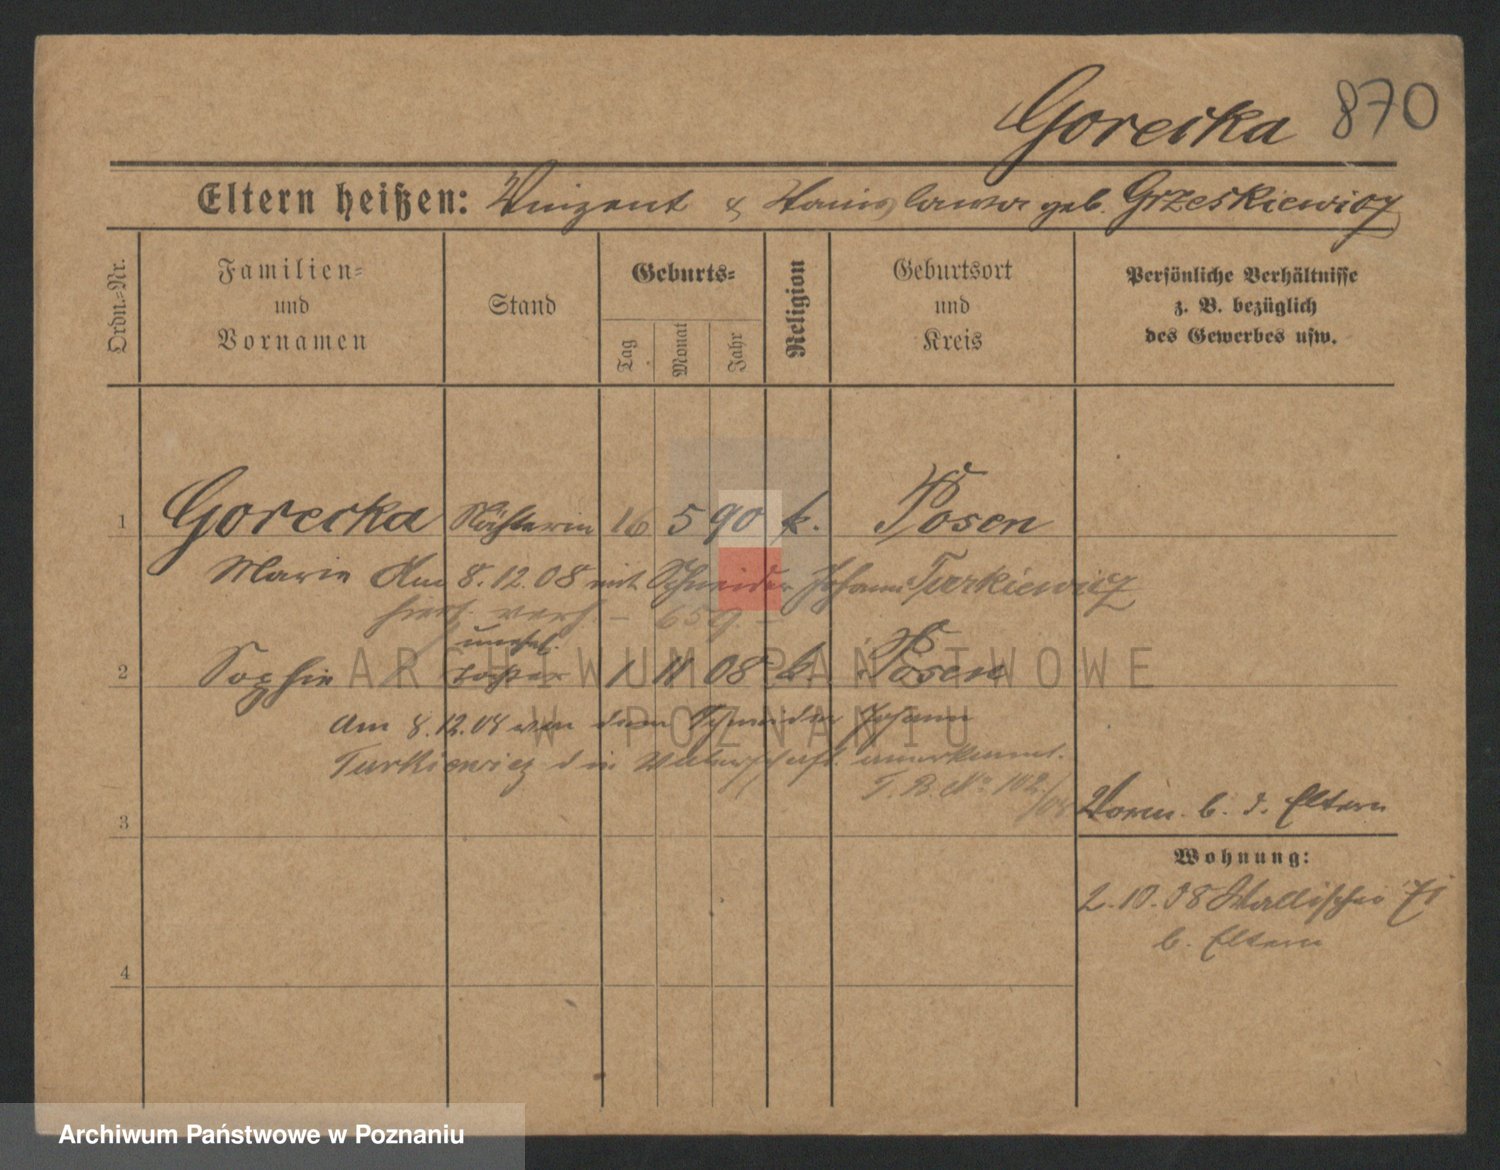 Gorecka 870
Eltern heißen: Vinzent & Stanislawa geb. Grzeskiewicz
Ordn.-Nr.
Familien-
und
Vornamen
Stand
Geburts-
Tag
Monat
Jahr
Religion
Geburtsort
und
Kreis
Persönliche Verhältnisse
z. B. bezüglich
des Gewerbes usw.
1 Gorecka Näherin 16 5 90 k. Posen
Marie Am 8.12.08 mit Schneider Johann Turkiewicz
hier verh. – 659. –
unehel.
2 Sophie Tochter 1 11 08 k. Posen
Am 8.12.08 von dem Schneider Johann
Turkiewicz die Vaterschaft anerkannt.
T. B. No 102/08
3
Vorm. b. d. Eltern
Wohnung:
2.10.08 Wallischei 71
b. Eltern
4
ARCHIWUM PAŃSTWOWE
W POZNANIU
Archiwum Państwowe w Poznaniu